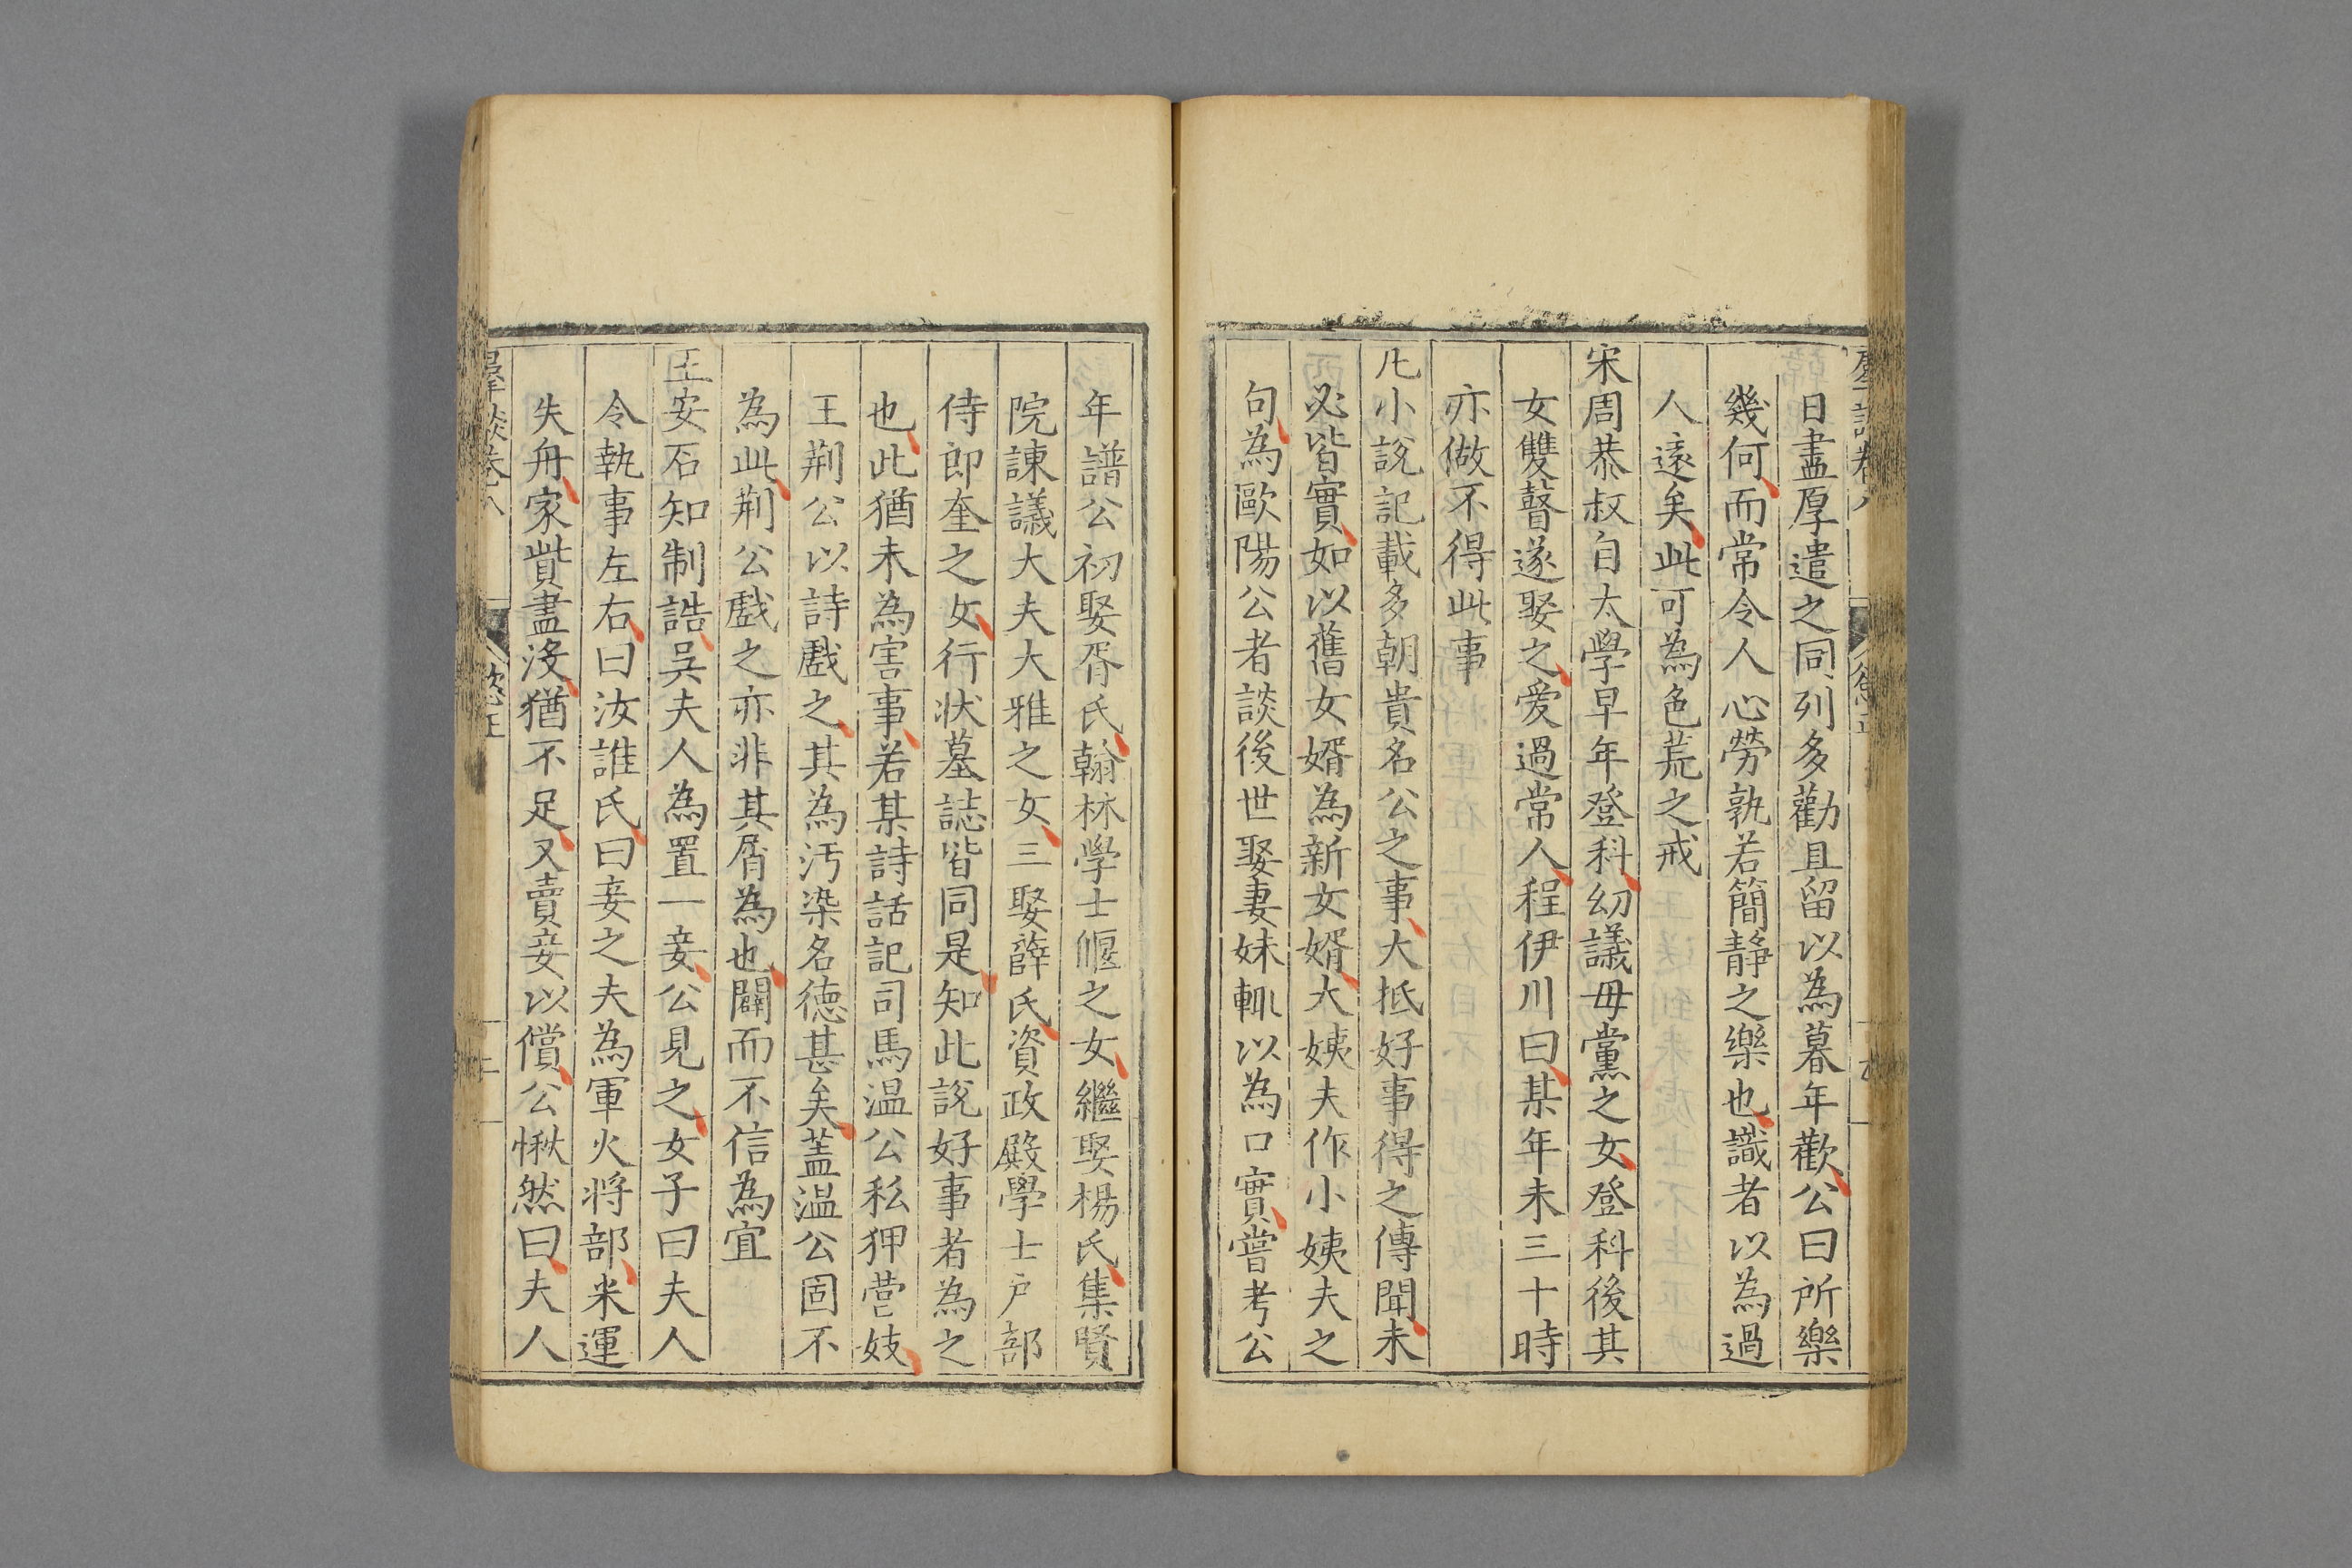 日盡厚遣之同列多勸且留以為暮年歡公曰所樂
幾何而常令人心勞孰若簡靜之樂也識者以為過
人遠矣此可為色荒之戒
宋周恭叔自太學早年登科幼議母黨之女登科後其
女雙瞽遂娶之愛過常人程伊川曰某年未三十時
亦做不得此事
凡小說記載多朝貴名公之事大抵好事得之傳聞未
必皆實如以舊女婿為新女婿大姨夫作小姨夫之
句為歐陽公者談後世娶妻妹輒以為口實嘗考公
年譜公初娶胥氏翰林學士偃之女繼娶楊氏集賢
院諫議大夫大雅之女三娶薛氏資政殿學士户部
侍郎奎之女行狀墓誌皆同是知此說好事者為之
也此猶未為害事若某詩話記司馬温公私狎營妓
王荆公以詩戲之其為汚染名德甚矣蓋温公固不
為此荆公戲之亦非其屑為也闢而不信為宜
王安石知制誥吴夫人為置一妾公見之女子曰夫人
令執事左右曰汝誰氏曰妾之夫為軍火將部米運
失舟家貲盡没猶不足又賣妾以償公愀然曰夫人